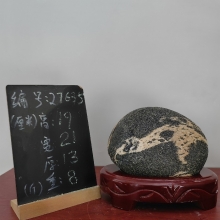 编号:27635
(厘米)高:19
宽:23
厚:13
(斤)重:8